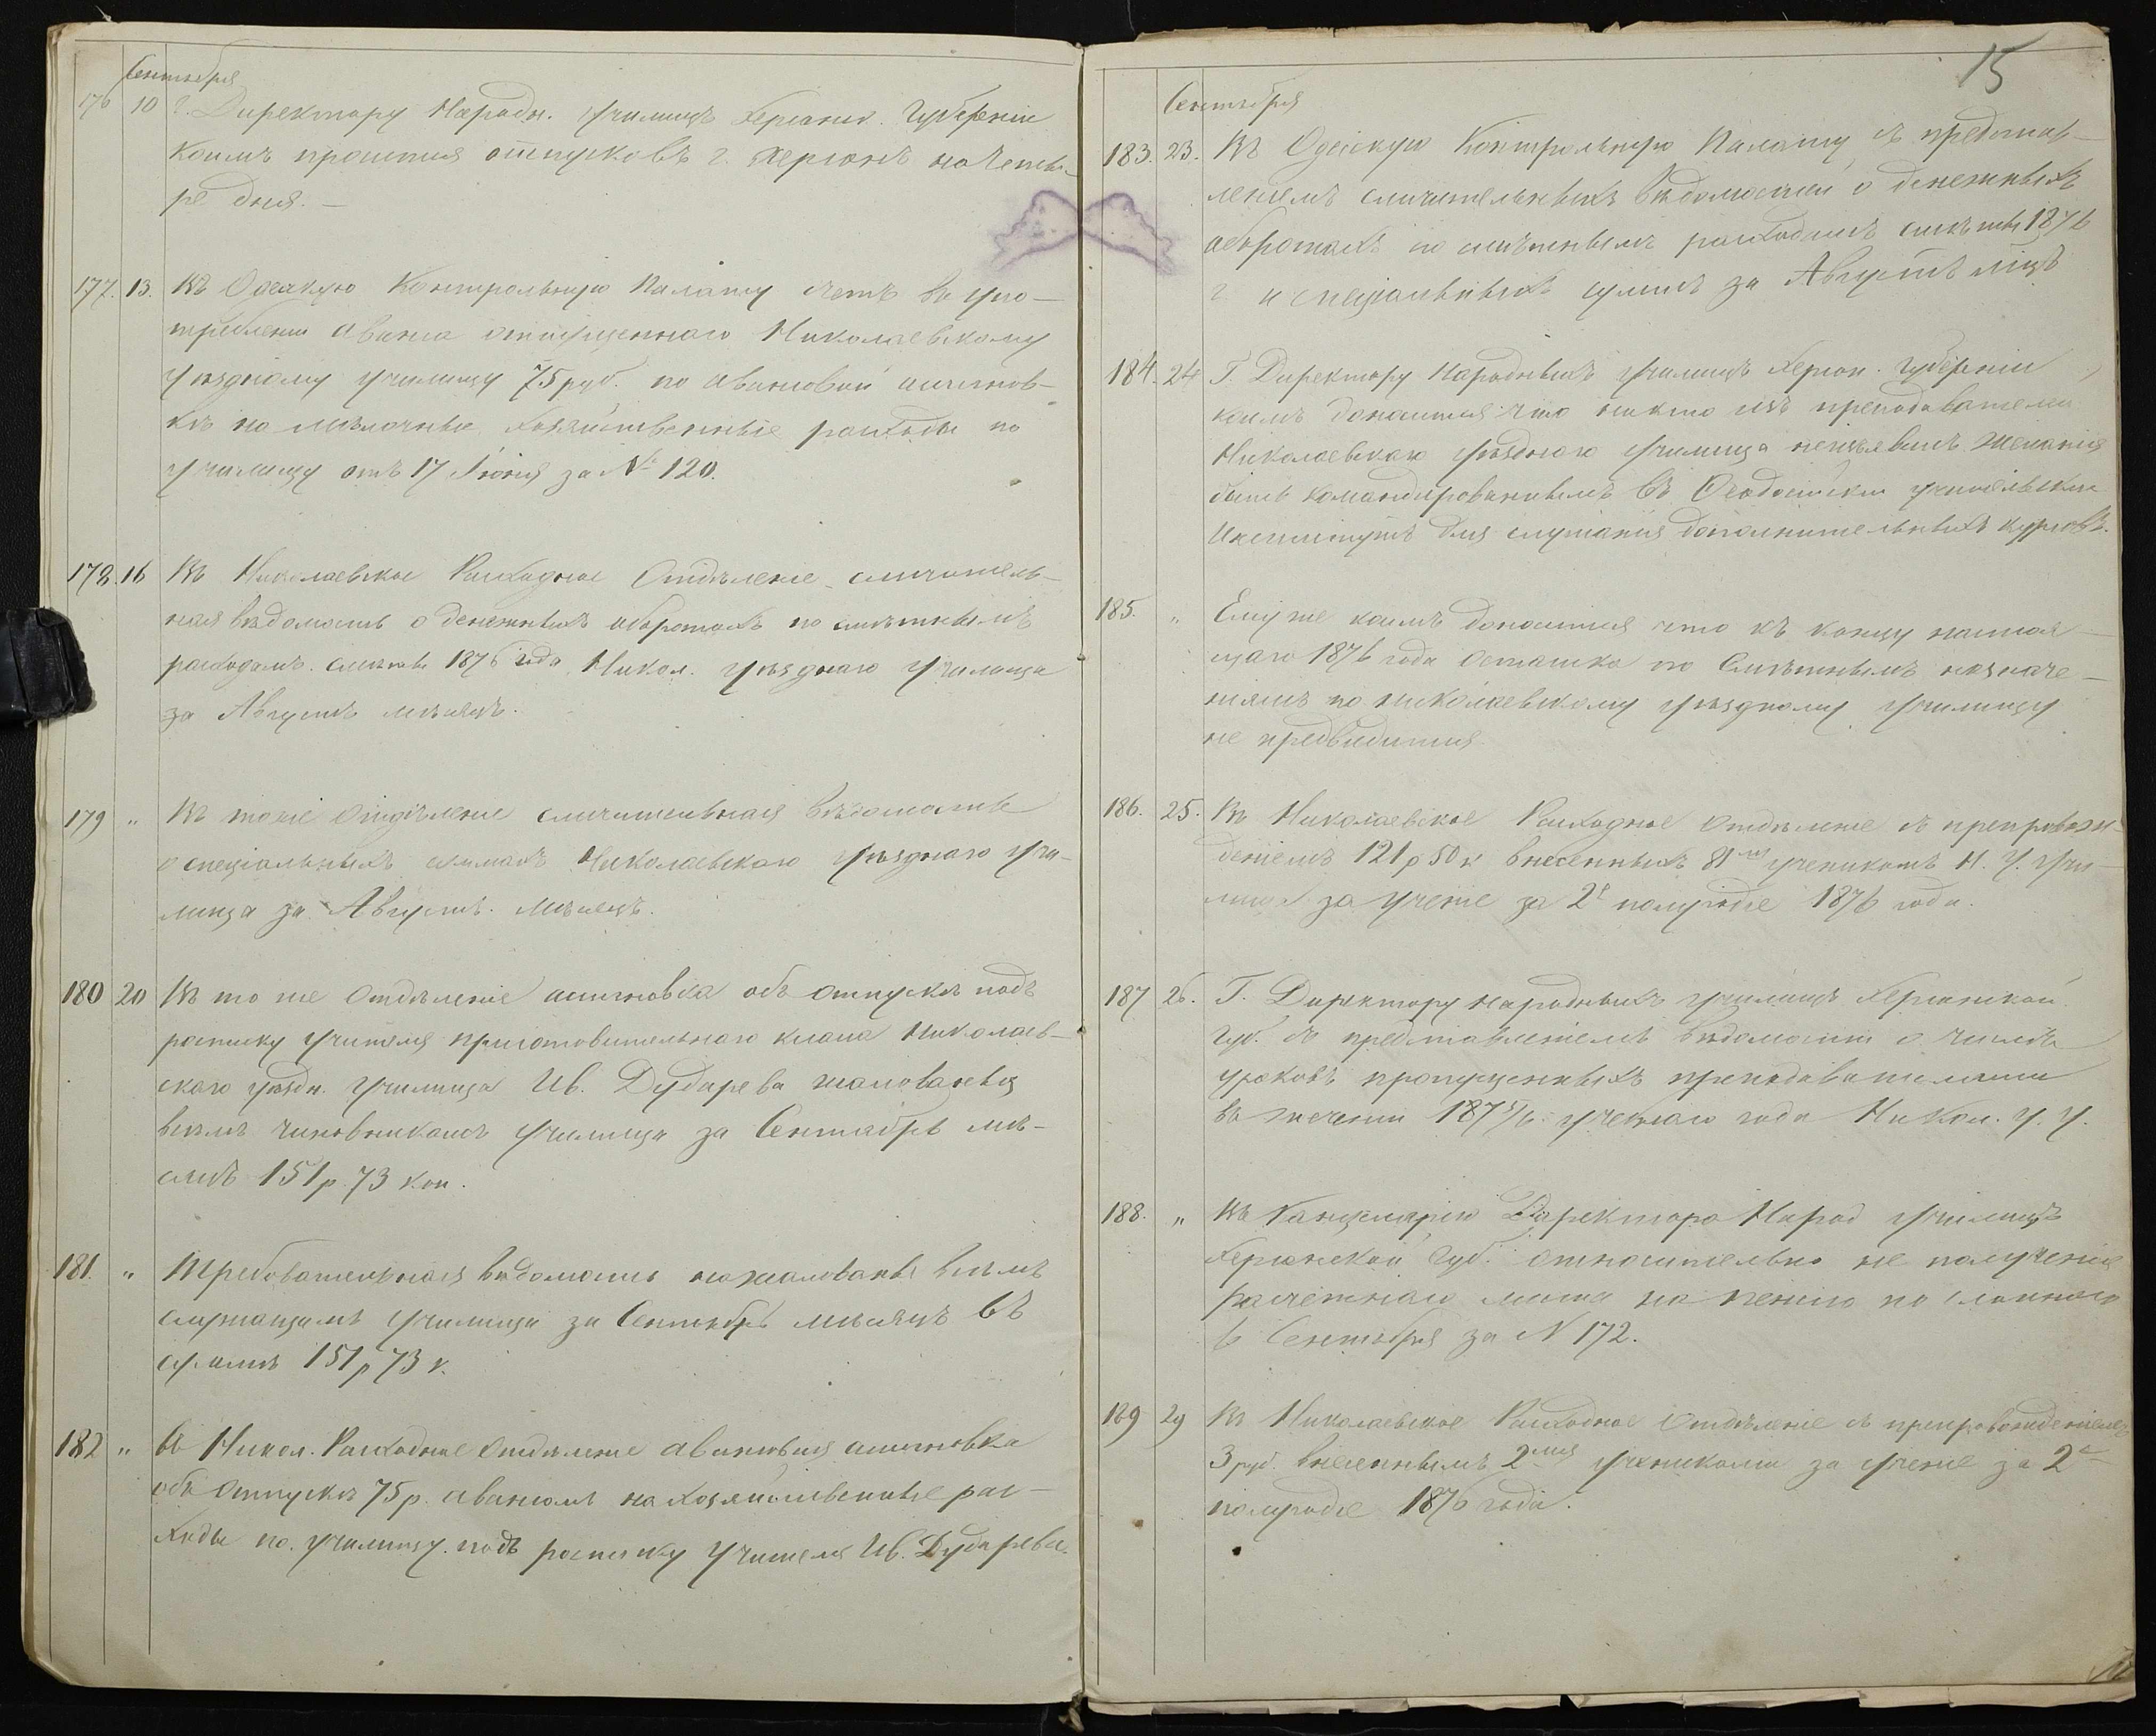 Сентября
176 10 Г. Директору Народн. училищъ Херсонс. Губерніи
коимъ просится отпускъ въ г. Херсонъ на четы-
ре дня. —
177. 13. Въ Одесскую Контрольную Палату счетъ въ упо-
требленіи аванса отпущеннаго Николаевскому
уѣздному училищу 75 руб. по авансовой ассигнов-
кѣ на мелочные хозяйственные расходы по
училищу отъ 17 Іюня за № 120.
178. 16 Въ Николаевское Расходное Отдѣленіе сличитель-
ная вѣдомость о денежныхъ оборотахъ по смѣтнымъ
расходамъ смѣты 1876 года Никол. уѣзднаго училища
за Августъ мѣсяцъ.
179 „ Въ тоже Отдѣленіе сличительная вѣдомость
о спеціальныхъ суммахъ Николаевскаго уѣзднаго учи-
лища за Августъ мѣсяцъ.
180 20 Въ то же Отдѣленіе ассигновка объ отпускѣ подъ
росписку учителя приготовительнаго класса Николаев-
скаго уѣздн. училища Ив. Дударева жалованья
всѣмъ чиновникамъ училища за Сентябрь мѣ-
сяцъ 151 р. 73 коп.
181. „ Требовательная вѣдомость на жалованье всѣмъ
служащимъ училища за Сентябрь мѣсяцъ въ
суммѣ 151 р 73 к.
182 „ Въ Никол. Расходное Отдѣленіе авансовая ассигновка
объ отпускѣ 75 р. авансомъ на хозяйственные рас-
ходы по училищу подъ росписку учителя Ив. Дударева.
15
Сентября
183. 23. Въ Одесскую Контрольную Палату съ представ-
леніемъ сличительныхъ вѣдомостей о денежныхъ
оборотахъ по смѣтнымъ расходамъ смѣты 1876
г. и спеціальныхъ суммъ за Августъ мцъ
184. 24 Г. Директору народныхъ училищъ Херсон. губерніи
коимъ доносится что никто изъ преподавателей
Николаевскаго уѣзднаго училища неизъявилъ желанія
быть командированнымъ въ Ѳеодосійскій учительскій
Институтъ для слушанія дополнительныхъ курсовъ.
185. „ Ему же коимъ доносится что къ концу настоя-
щаго 1876 года остатка по смѣтнымъ назначе-
ніямъ по николаевскому уѣздному училищу
не предвидится.
186. 25. Въ Николаевское Расходное Отдѣленіе съ препровож-
деніемъ 121 р 50 к внесенныхъ 81 ученикомъ Н. У. Учи-
лища за ученіе за 2е полугодіе 1876 года.
187 26. Г. Директору народныхъ училищъ Херсонской
губ. съ представленіемъ вѣдомости о числѣ
уроковъ пропущенныхъ преподавателями
въ теченіи 1875/6 учебнаго года Никол. У. У.
188. „ Въ Канцелярію Директора Народ училищъ
Херсонской Губ. относительно не полученія
расчетнаго листа на пенсію по
6 Сентября за N 172.
189 29 Въ Николаевское Расходное Отдѣленіе съ препровожденіемъ
3 руб. внесеннымъ 2мя учениками за ученіе за 2е
полугодіе 1876 года.